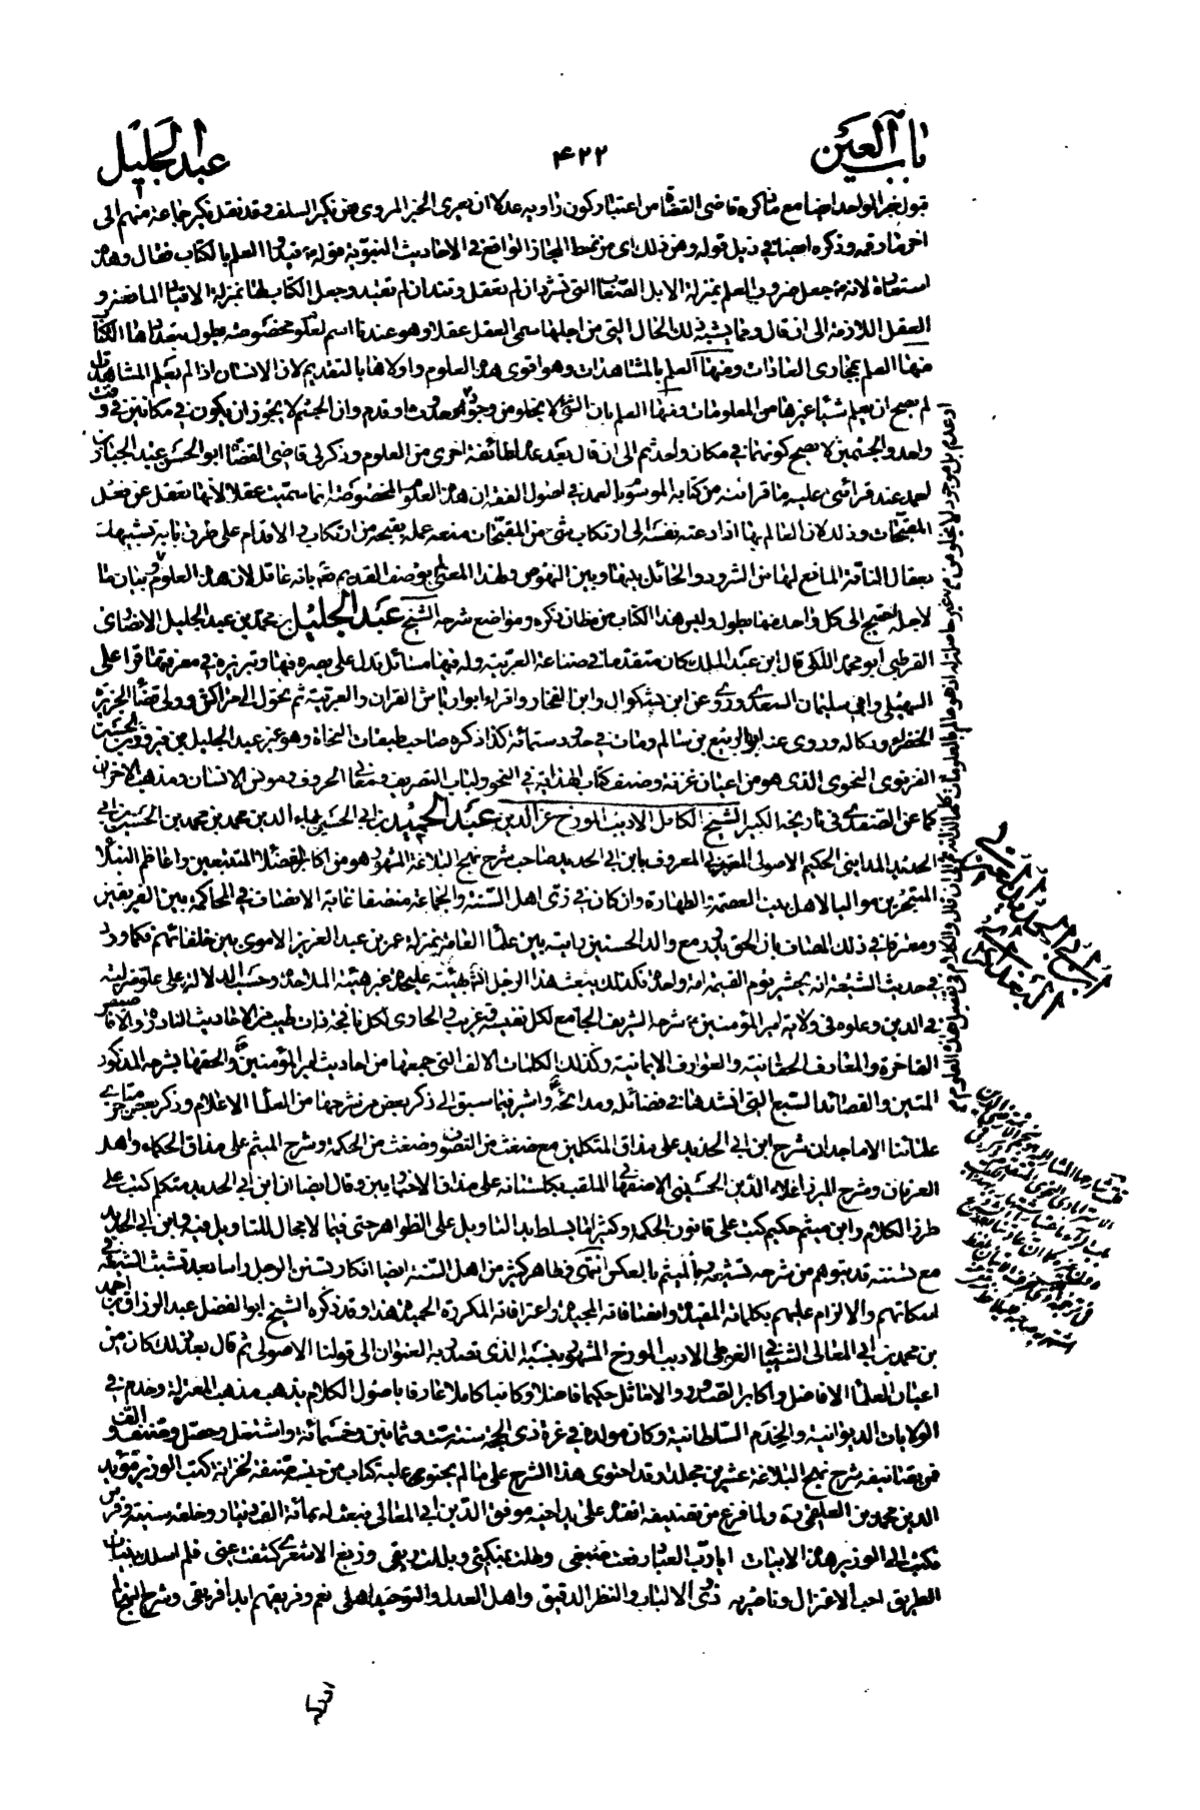 باب العين ۴۲۲ عبد الجليل
قبول خبر الواحد ايضا مع ما ذكره قاضى القضاة من اعتبار كون راويه عدلا ان يجرى الخبر المروى عن نكير السلف وقد نقل نكير جماعة منهم الى
اخر ما رقمه وذكره ايضا فى ذيل قوله ومن ذلك اى من نمط المجاز الواقع فى الاحاديث النبوية قوله قيدوا العلم بالكتاب فقال وهذه
استعارة لانه جعل ضروب العلم بمنزلة الابل الصعاب التى تشرد ان لم تعقل وتند ان لم تقيد وجعل الكتاب لها بمنزلة الاقياد المانعة و
العقل اللازمة الى ان قال ومما يشبه ذلك الحال التى من اجلها سمى العقل عقلا وهو عندنا اسم لعلوم مخصوصة يطول بتعدادها الكتاب
منها العلم بمجارى العادات ومنها العلم بالمشاهدات وهو اقوى هذه العلوم واولاها بالتقديم لان الانسان اذا لم يعلم المشاهدات
لم يصح ان يعلم شيئا غيرها من المعلومات ومنها العلم بان الشئ لا يخلو من وجود او عدم وحدوث او قدم وان الجسم لا يجوز ان يكون فى مكانين فى وقت
واحد والجسمين لا يصح كونهما فى مكان واحد ثم الى ان قال بعد عد طائفة اخرى من العلوم وذكر لى قاضى القضاة ابو الحسن عبد الجبار بن
احمد عند قرائتى عليه ما قرأته من كتابه الموسوم بالعمد فى اصول الفقه ان هذه العلوم المخصوصة انما سميت عقلا لأنها تعقل عن فعل
المقبحات وذلك لان العالم بها اذا دعته نفسه الى ارتكاب شئ من المقبحات منعه علمه بقبحه من ارتكابه والاقدام على طرق بابه تشبيها
بعقال الناقة المانع لها من الشرود والحائل بينها وبين النهوض ولهذا المعنى لم يوصف القديم تعالى بانه عاقل لان هذه العلوم وبيان ما
لاجله احتيج الى كل واحد منها يطول وليس هذا الكتاب من مظان ذكره ومواضع شرحه الشيخ عبد الجليل بن محمد بن عبد الجليل الانصارى
القرطبى ابو محمد اللكى قال ابن عبد الملك كان متقدما فى صناعة العربية وله فيها مسائل تدل على بصره فيها وتبرزه فى معرفتها قرا على
السهيلى وابى سليمان السعدى وروى عن ابن بشكوال وابن الفخار واقراء ابوارياش القران والعربية ثم تحول الى مراكش وولى قضاء الجزيرة
الخضراء ودكالة وروى عنه ابو الربيع بن سالم ومات فى حدود ستمائة كذا ذكره صاحب طبقات النحاة وهو غير عبد الجليل بن فيروز بن الحسن
الغزنوى النحوى الذى هو من اعيان غزنة وصنف كتاب الهداية فى النحو ولباب التصريف ومعانى الحروف ومونس الانسان ومذهب الاحزان
كما عن الصفدى فى تاريخه الكبير الشيخ الكامل الاديب المورخ عز الدين عبد الحميد بن ابى الحسين بهاء الدين محمد بن محمد بن الحسين بن ابى
الحديد المداينى الحكيم الاصولى المعتزلى المعروف بابن ابى الحديد صاحب شرح نهج البلاغة المشهور هو من اكابر الفضلاء المتتبعين واعاظم النبلاء
المتبحرين مواليا لاهل بيت العصمة والطهارة وان كان فى زى اهل السنة والجماعة منصفا غاية الانصاف فى المحاكمة بين الفريقين
ومعترفا فى ذلك المصاف بان الحق يدور مع والد الحسنين رايته بين علماء العامة بمنزلة عمر بن عبد العزيز الاموى بين خلفائهم فكما ورد
فى حديث الشيعة انه يحشر يوم القيمة امة واحدة فكذلك يبعث هذا الرجل انشاء الله بهيئة عليحدة غير هيئة الملاحدة وحسب الدلالة على علو منزلته
فى الدين وغلوه فى ولاية امير المؤمنين شرحه الشريف الجامع لكل نفيسة وغريب والحاوى لكل نافحة ذات طيب من الاحاديث النادرة والاقاصيص
الفاخرة والمعارف الحقانية والعوارف الايمانية وكذلك الكلمات الالف التى جمعها من احاديث امير المؤمنين والحقها بشرحه المذكور
المتين والقصائد السبع التى انشدها فى فضائله ومدائحه واشير فيما سبق الى ذكر بعض من شرحها من العلماء الاعلام وذكر بعض متاخرى
علمائنا الاماجد ان شرح ابن ابى الحديد على مذاق المتكلمين مع ضغث من التصوف وضغث من الحكمة وشرح الميثم على مذاق الحكماء واهل
العرفان وشرح الميرزا علاء الدين الحسينى الاصفهانى الملقب بكلستانه على مذاق الاخباريين وقال ايضا ان ابن ابى الحديد متكلم كتب على
طرز الكلام وابن ميثم حكيم كتب على قانون الحكمة وكثيرا ما يسلط يد التاويل على الظواهر حتى فيما لا مجال للتاويل فيه وابن ابى الحديد
مع تسننه قد يتوهم من شرحه تشيعه وابن الميثم بالعكس انتهى وظاهر كثير من اهل السنة ايضا انكار تسنن الرجل راسا بعد تشبث الشيعة فى
اسكاتهم والالزام عليهم بكلماته المقيدة وانصافاته المجيدة واعترافاته المكررة الحميدة هذا وقد ذكره الشيخ ابو الفضل عبد الرزاق بن احمد
بن محمد بن ابى المعالى الشيبانى الفوطى الاديب المورخ المشهور بنسبه الذى تصدر به العنوان الى قولنا الاصولى ثم قال بعد ذلك كان من
اعيان العلماء الافاضل واكابر الصدور والاماثل حكيما فاضلا وكاتبا كاملا عارفا باصول الكلام يذهب مذهب المعتزلة وخدم فى
الولايات الديوانية والخدم السلطانية وكان مولده فى غرة ذى الحجة سنة ست وثمانين وخمسمائة واشتغل وحصل وصنف والف
فمن تصانيفه شرح نهج البلاغة عشرين مجلدا وقد احتوى هذا الشرح على ما لم يحتوى عليه كتاب من جنسه صنفه لخزانة كتب الوزير مؤيد
الدين محمد بن العلقمى ره ولما فرغ من تصنيفه انفذه على يد اخيه موفق الدين ابى المعالى فبعث له بمائة الف دينار وخلعة سنية وفرس
فكتب الى الوزير هذه الابيات ايا رب العباد رفعت ضبعى وطلت بمنكبى وبللت ريقى وزيغ الاشعرى كشفت عنى فلم اسلك بنيات
الطريق احب الاعتزال وناصريه ذوى الالباب والنظر الدقيق واهل العدل والتوحيد اهلى نعم وفريقهم ابدا فريقى وشرح النهج لم